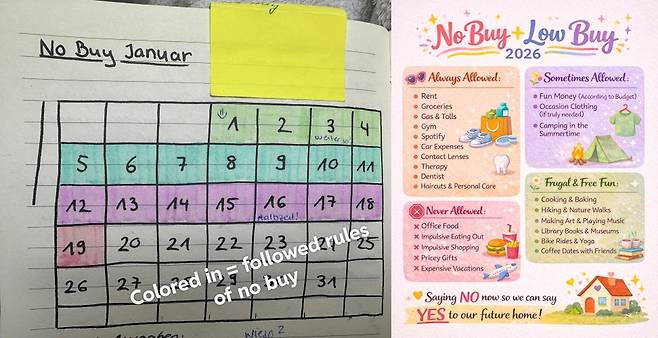 No Buy Januar
1 2 3 4
5 6 7 8 9 10 11
12 13 14 15 16 17 18
19 20 21 22 23 24 25
26 27 31
Colored in = followed rules
of no buy
No Buy + Low Buy
2026
Always Allowed:
Rent
Groceries
Gas & Tolls
Gym
Spotify
Car Expenses
Contact Lenses
Therapy
Dentist
Haircuts & Personal Care
Sometimes Allowed:
Fun Money (According to Budget)
Occasion Clothing
(if truly needed)
Camping in the
Summertime
Never Allowed:
Office Food
Impulsive Eating Out
Impulsive Shopping
Pricey Gifts
Expensive Vacations
Frugal & Free Fun:
Cooking & Baking
Hiking & Nature Walks
Making Art & Playing Music
Library Books & Museums
Bike Rides & Yoga
Coffee Dates with Friends
Saying NO now so we can say
YES to our future home!